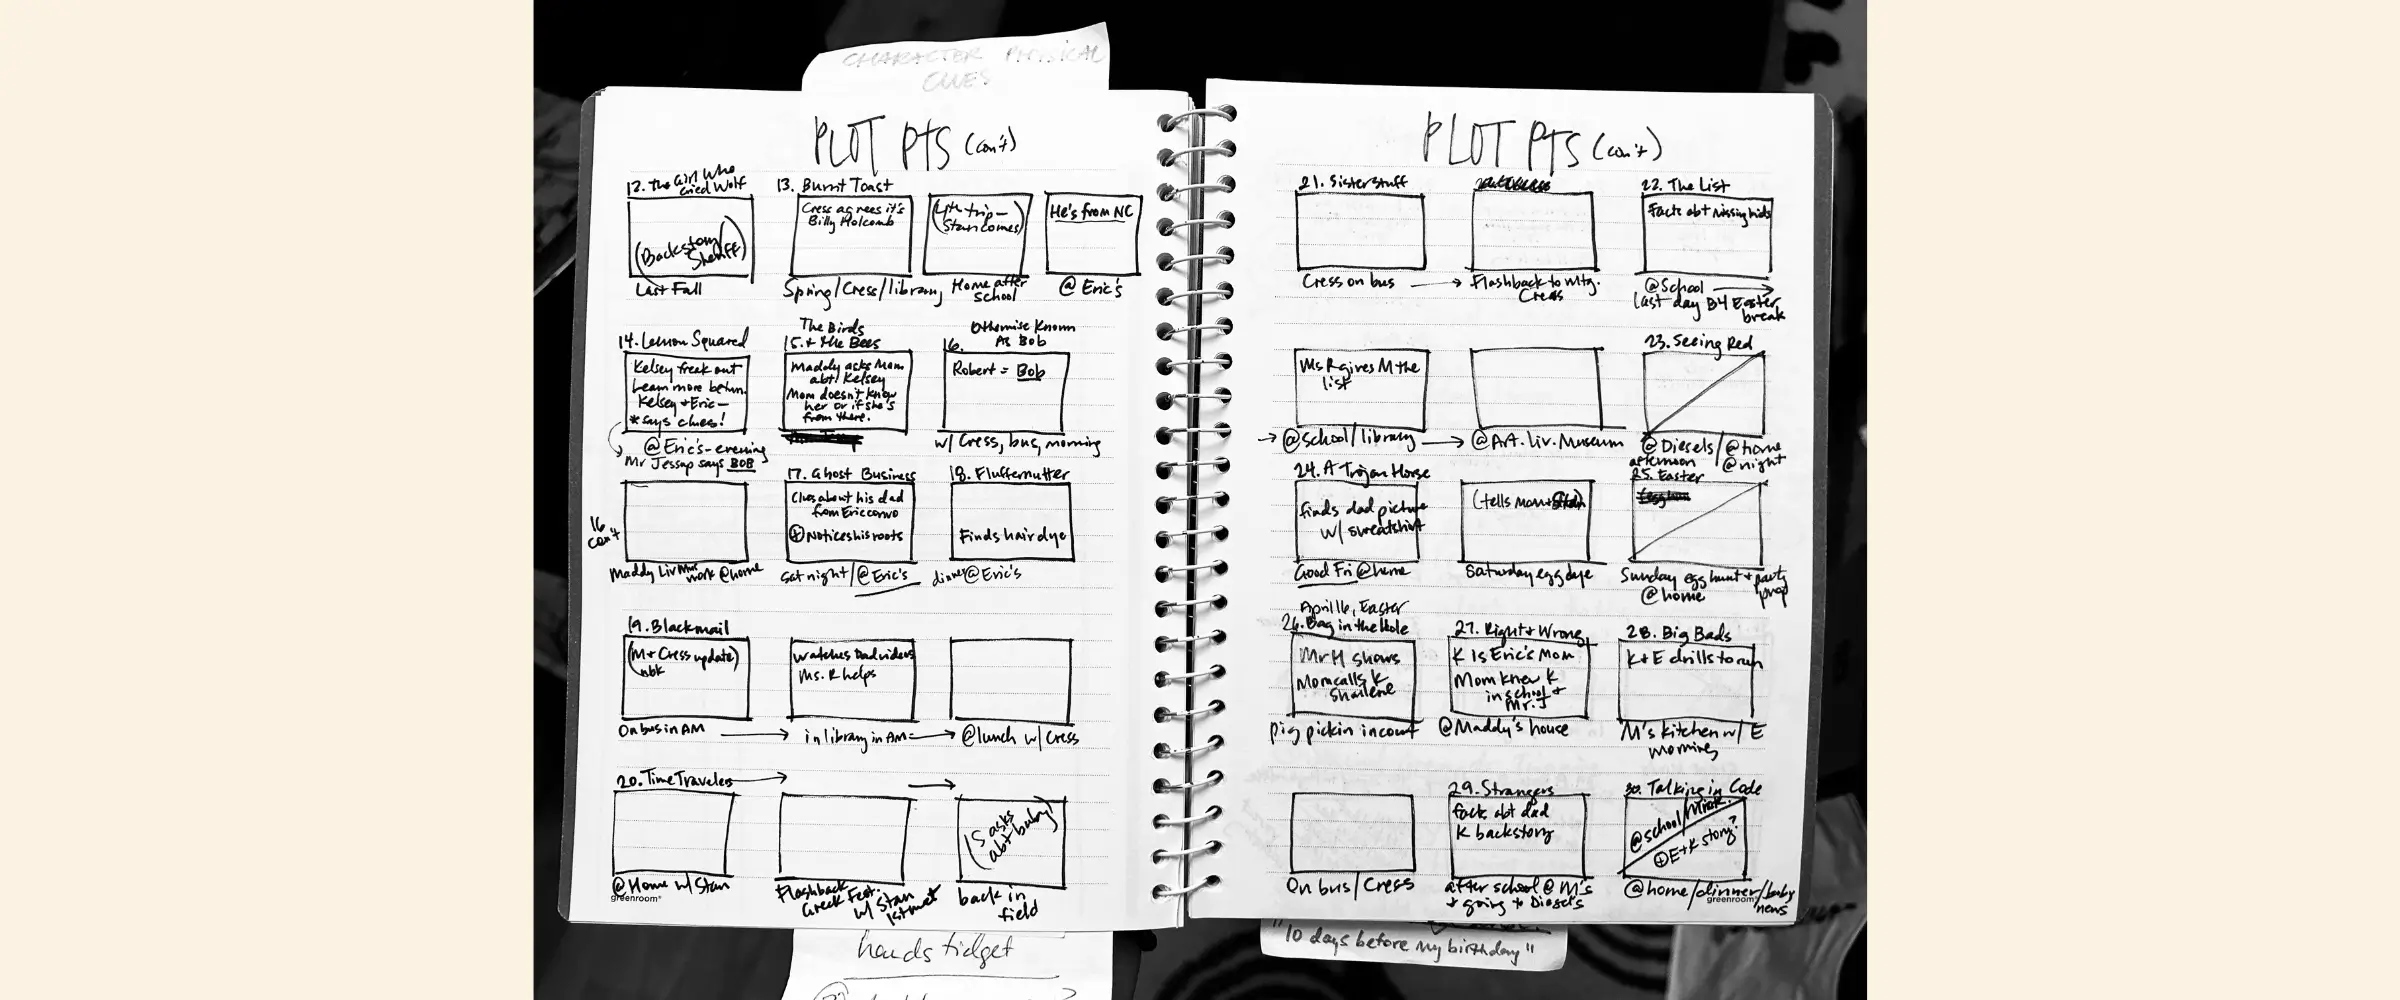 CHARACTER PHYSICAL
CLUES
PLOT PTS (con't)
12. The Girl Who
Cried Wolf
(Backstory
Sheriff)
Last Fall
13. Burnt Toast
Cress agrees it's
Billy Holcomb
Spring/Cress/library
Stan comes)
Home after
school
He's from NC
@ Eric's
14. Lemon Squared
Kelsey freak out
Learn more betwn.
Kelsey + Eric —
*says clues!
@Eric's-evening
Mr Jessup says BOB
The Birds
15. + the Bees
Maddy asks Mom
abt Kelsey
Mom doesn't know
her or if she's
from there.
Otherwise Known
16. As Bob
Robert = Bob
w/ Cress, bus, morning
16
con't
Maddy Liv Mus
work @home
17. Ghost Business
Clues about his dad
from Eric convo
+ Notices his roots
Sat night/@Eric's
18. Fluffernutter
Finds hair dye
dinner @Eric's
19. Blackmail
(M + Cress update)
nbk
On bus in AM
watches Dad videos
Ms. R helps
in library in AM
@lunch w/ Cress
20. Time Travelers
@Home w/ Stan
Flashback
Greek Fest.
w/ Stan
1st met
(S asks
abt baby)
back in
field
greenroom®
hands fidget
PLOT PTS (con't)
21. Sister Stuff
Cress on bus
Flashback to mtg.
Cress
22. The List
Facts abt missing kids
@School
last day B4 Easter
break
Ms R gives M the
list
@school/library
@Art. Liv. Museum
23. Seeing Red
@Diesels/@home
afternoon @night
24. A Trojan Horse
finds dad picture
w/ sweatshirt
Good Fri @home
(tells mom + Stan)
Saturday egg dye
25. Easter
Sunday egg hunt + party
@home prep
April 16, Easter
26. Bag in the Hole
Mr H shows
Mom calls K
Shailene
pig pickin in court
27. Right + Wrong
K is Eric's Mom
Mom knew K
in school +
Mr. J
@Maddy's house
28. Big Bads
K + E drills to run
M's kitchen w/ E
morning
On bus/Cress
29. Strangers
facts abt dad
K backstory
after school @ M's
+ going to Diesel's
30. Talking in Code
@school/
+ E+K story?
@home/dinner/baby
news
greenroom®
"10 days before my birthday"